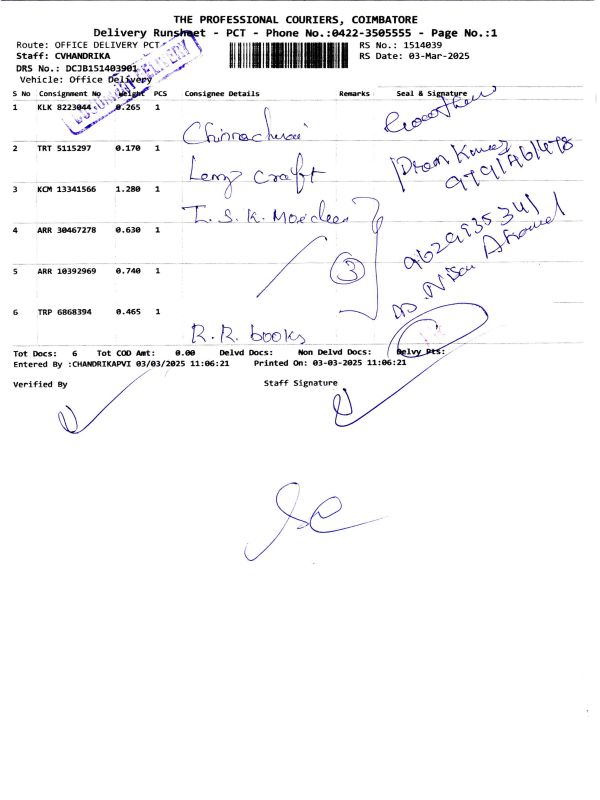 THE PROFESSIONAL COURIERS, COIMBATORE
Delivery Runsheet - PCT - Phone No.:0422-3505555 - Page No.:1
Route: OFFICE DELIVERY PCT
Staff: CVHANDRIKA
DRS No.: DCJB151403901
Vehicle: Office Delivery
RS No.: 1514039
RS Date: 03-Mar-2025
DOCUMENT DELIVERY
S No Consignment No Weight PCS Consignee Details Remarks Seal & Signature
1 KLK 8223044 0.265 1
2 TRT 5115297 0.170 1 Craft
3 KCM 13341566 1.280 1 I. S. K.
4 ARR 30467278 0.630 1
3
5 ARR 10392969 0.740 1
6 TRP 6868394 0.465 1 R.R. books
Tot Docs: 6 Tot COD Amt: 0.00 Delvd Docs: Non Delvd Docs: Delvy Pts:
Entered By :CHANDRIKAPVI 03/03/2025 11:06:21 Printed On: 03-03-2025 11:06:21
Verified By Staff Signature